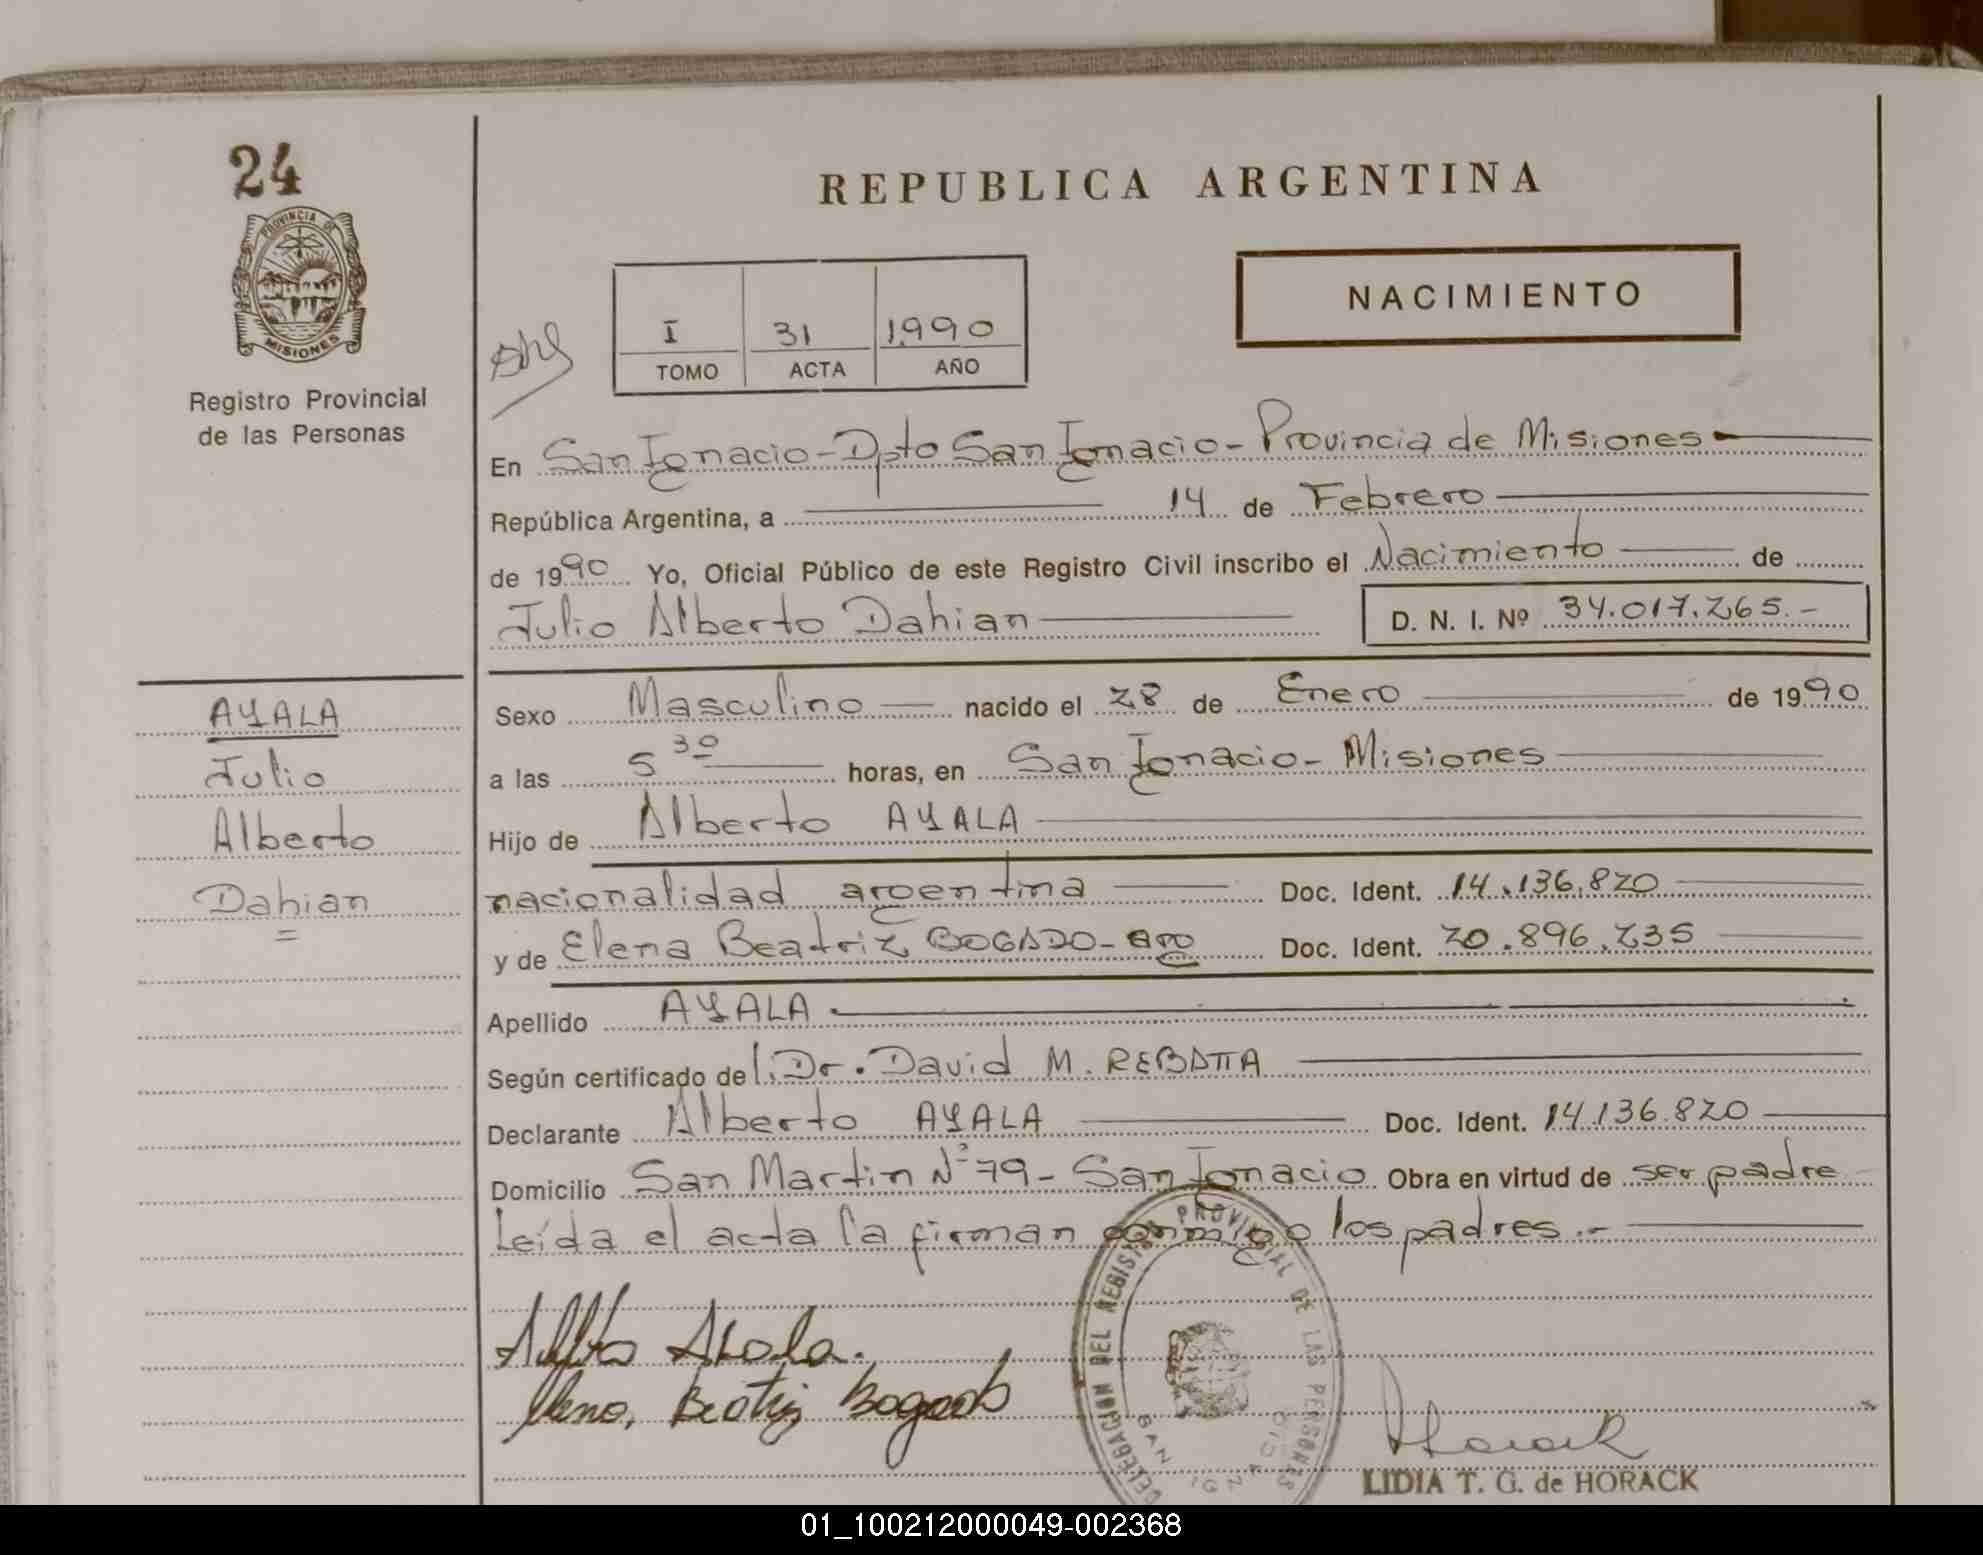 24
PROVINCIA DE
MISIONES
Registro Provincial
de las Personas
REPUBLICA ARGENTINA
NACIMIENTO
I 31 1990
TOMO ACTA AÑO
En San Ignacio - Dpto San Ignacio - Provincia de Misiones
República Argentina, a 14 de Febrero
de 1990 Yo, Oficial Público de este Registro Civil inscribo el Nacimiento de
Julio Alberto Dahian D. N. I. Nº 34.017.265.-
AYALA
Julio
Alberto
Dahian
Sexo Masculino nacido el 28 de Enero de 1990
a las 5 30 horas, en San Ignacio - Misiones
Hijo de Alberto AYALA
nacionalidad argentina Doc. Ident. 14.136.820
y de Elena Beatriz BOGADO - arg Doc. Ident. 20.896.235
Apellido AYALA
Según certificado del Dr. David M. REBATTA
Declarante Alberto AYALA Doc. Ident. 14.136.820
Domicilio San Martin Nº 79 - San Ignacio Obra en virtud de ser padre
Leída el acta la firman conmigo los padres.-
Beatriz Bogado
DELEGACION DEL REGISTRO PROVINCIAL DE LAS PERSONAS
SAN IGNACIO
Horack
LIDIA T. G. de HORACK
01_100212000049-002368